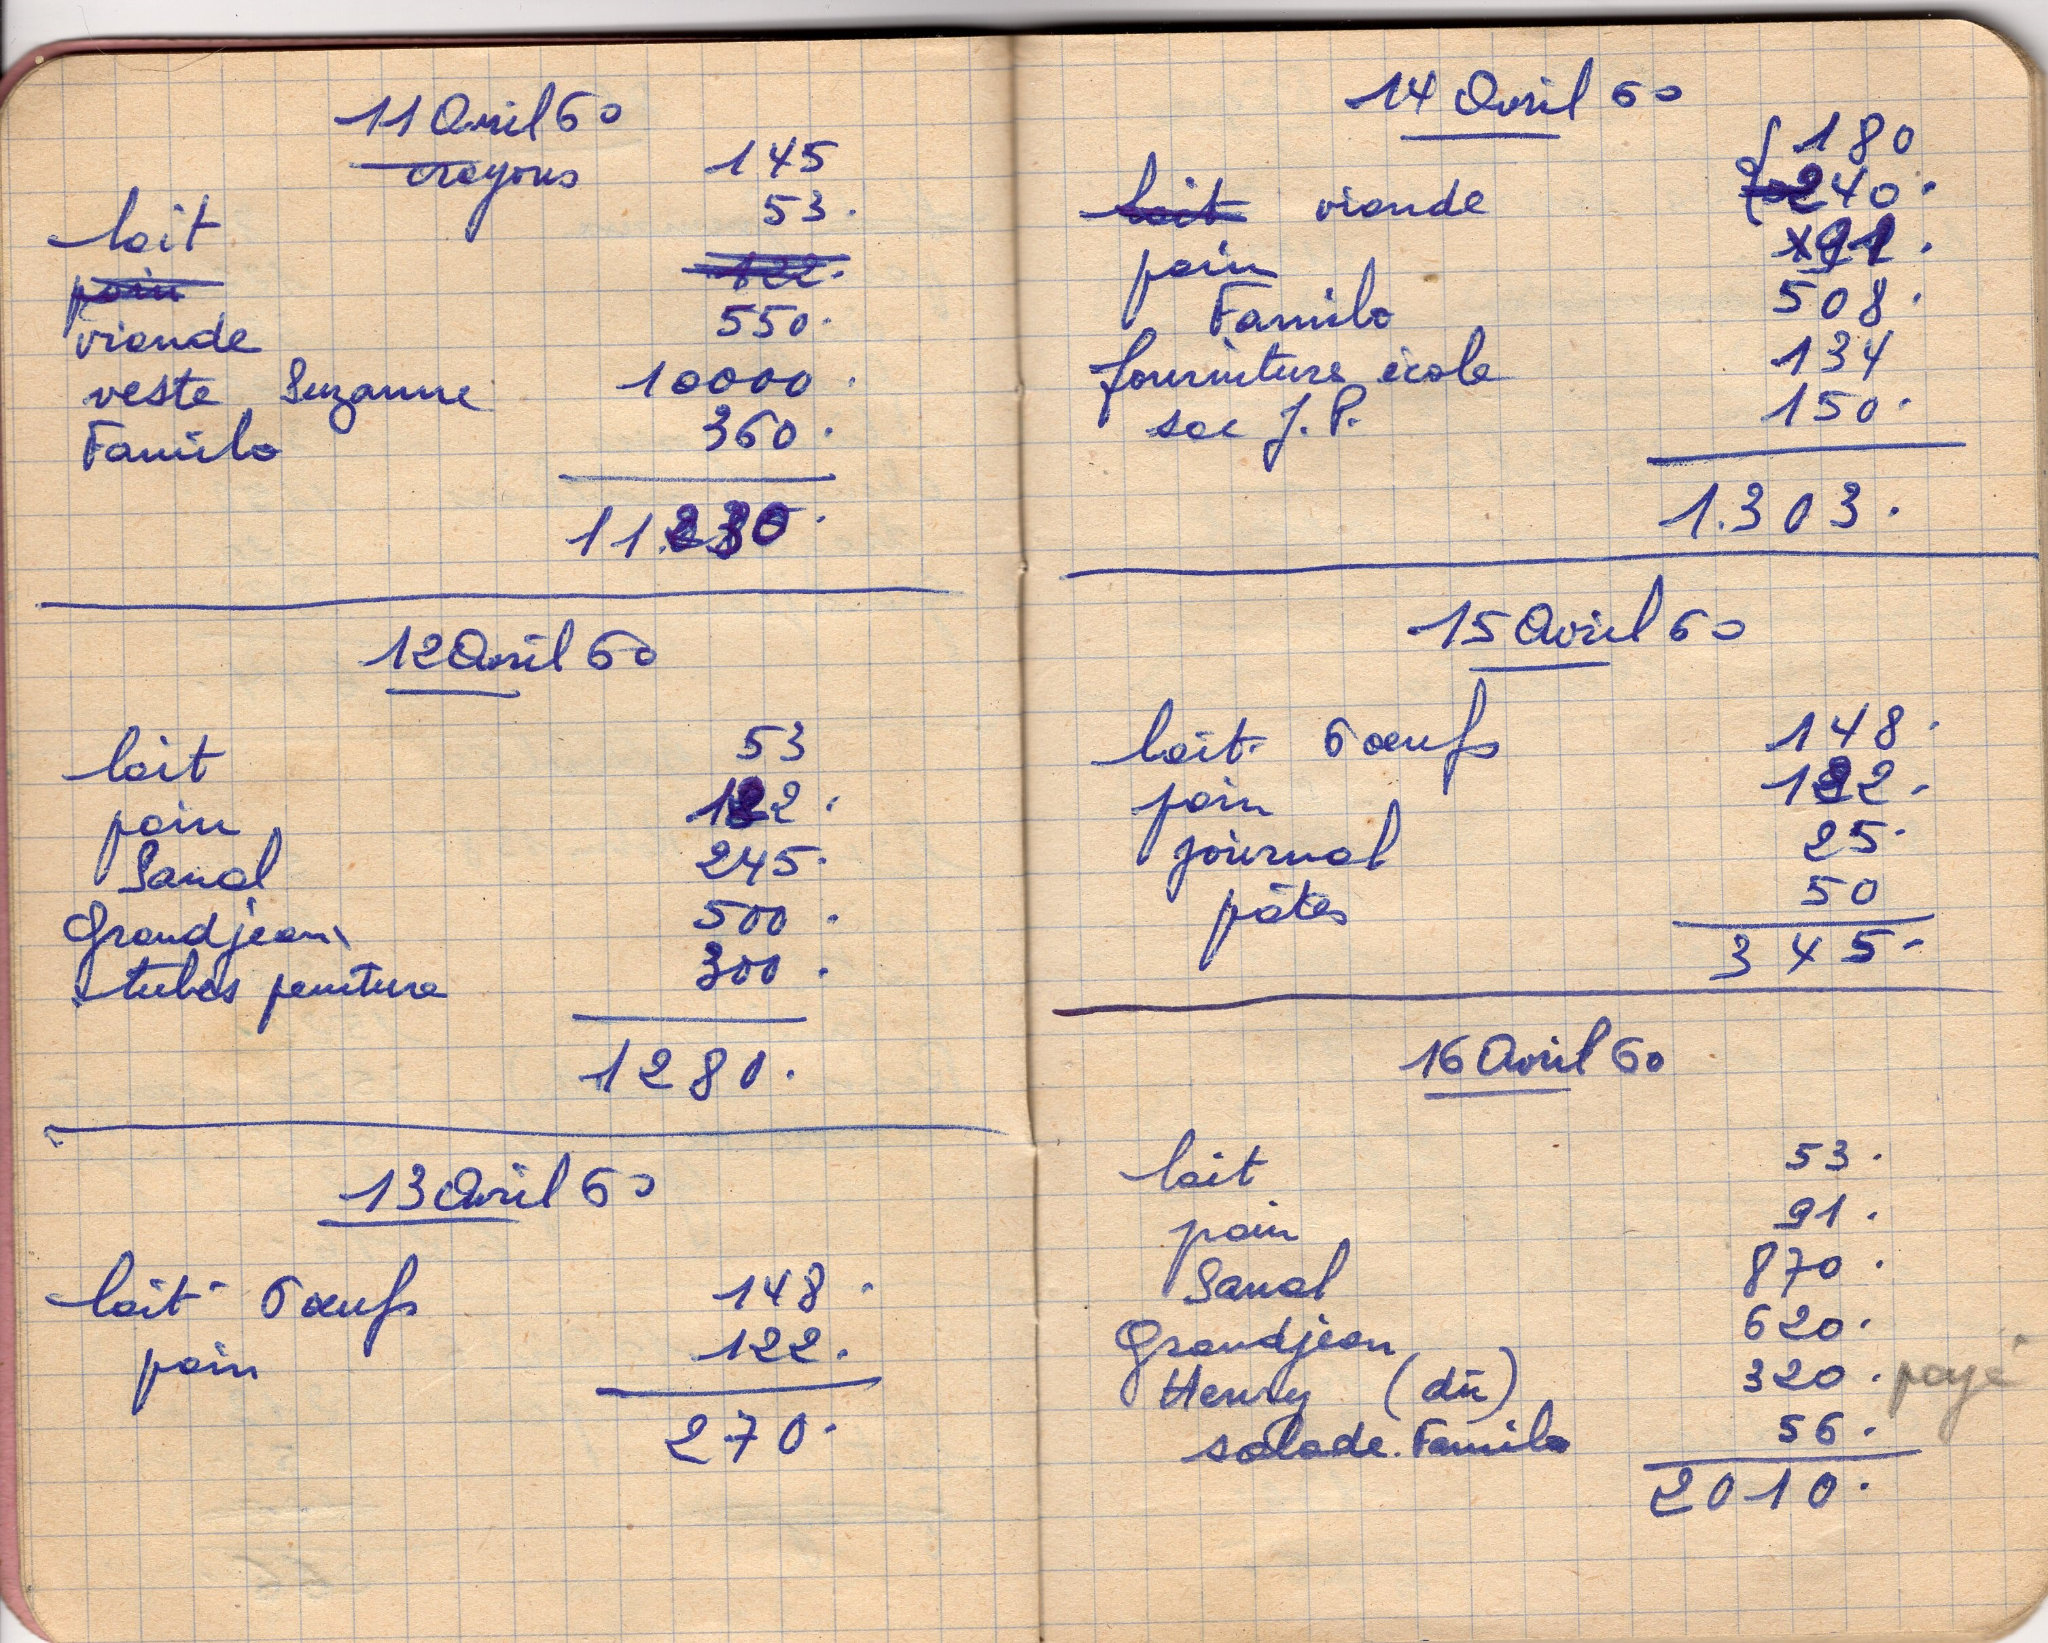 11 Avril 60
crayons 145
lait 53.
pain 122.
viande 550.
veste Suzanne 10000.
Familo 360.
11.230.
12 Avril 60
lait 53
pain 122.
Sanal 245.
Grandjean 500.
tubes peinture 300.
1280.
13 Avril 60
lait - 6 œufs 148.
pain 122.
270.
14 Avril 60
180
lait viande 240.
pain 91.
Familo 508.
fourniture école 134
sac J.P. 150.
1.303.
15 Avril 60
lait - 6 œufs 148.
pain 122.
journal 25.
pâtes 50
345-
16 Avril 60
lait 53.
pain 91.
Sanal 870.
Grandjean 620.
Henry (dû) 320. payé
salade. Familo 56.
2010.